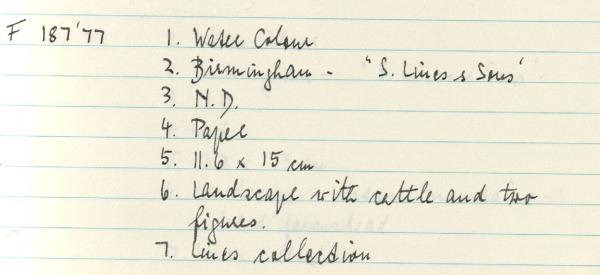 F 187'77 1. Water Colour
2. Birmingham - "S. Lines & Sons"
3. N.D.
4. Paper
5. 11.6 x 15 cm
6. Landscape with cattle and two
figures.
7. Lines collection